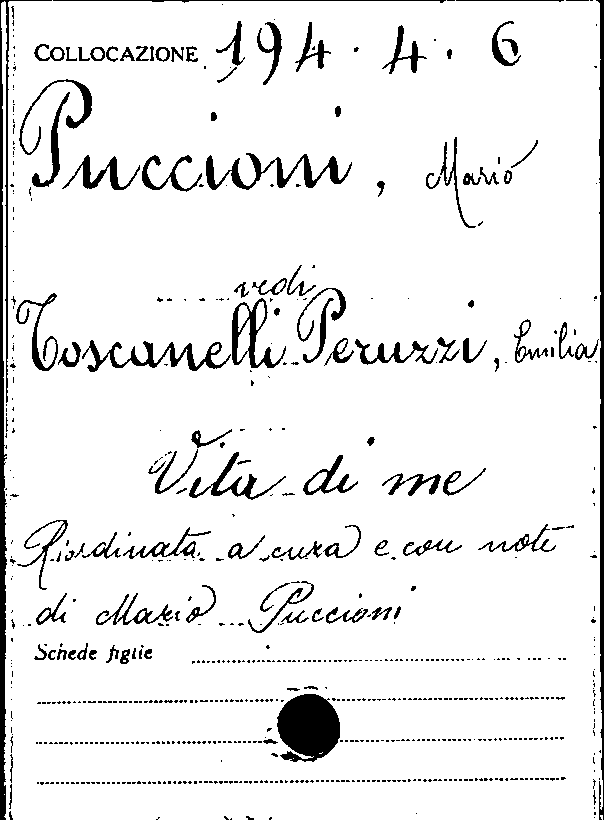 COLLOCAZIONE 194 . 4 . 6
Puccioni, Mario
vedi
Toscanelli Peruzzi, Emilia
Vita di me
Riordinata a cura e con note
di Mario Puccioni
Schede figlie